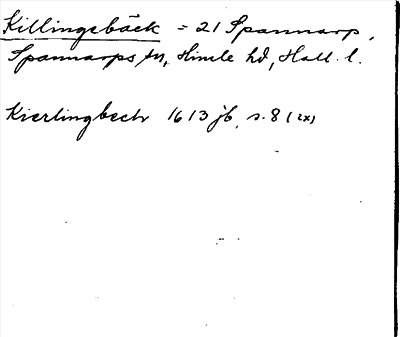 Killingsbäck = 21 Spannarp,
Spannarps sn, Himle hd, Hall. l.
Kierlingbech 1613 jb, s. 8 (2x)